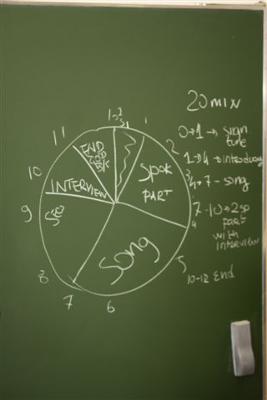 20 MIN
0→1→ sign
ture
1→4→ introduc
4→7→ song
7-10→2SP
part
with
interview
10-12 END
11
1
END
2
SPOK
PART
10
INTERVIEW
9
4
SONG
5
8
7
6